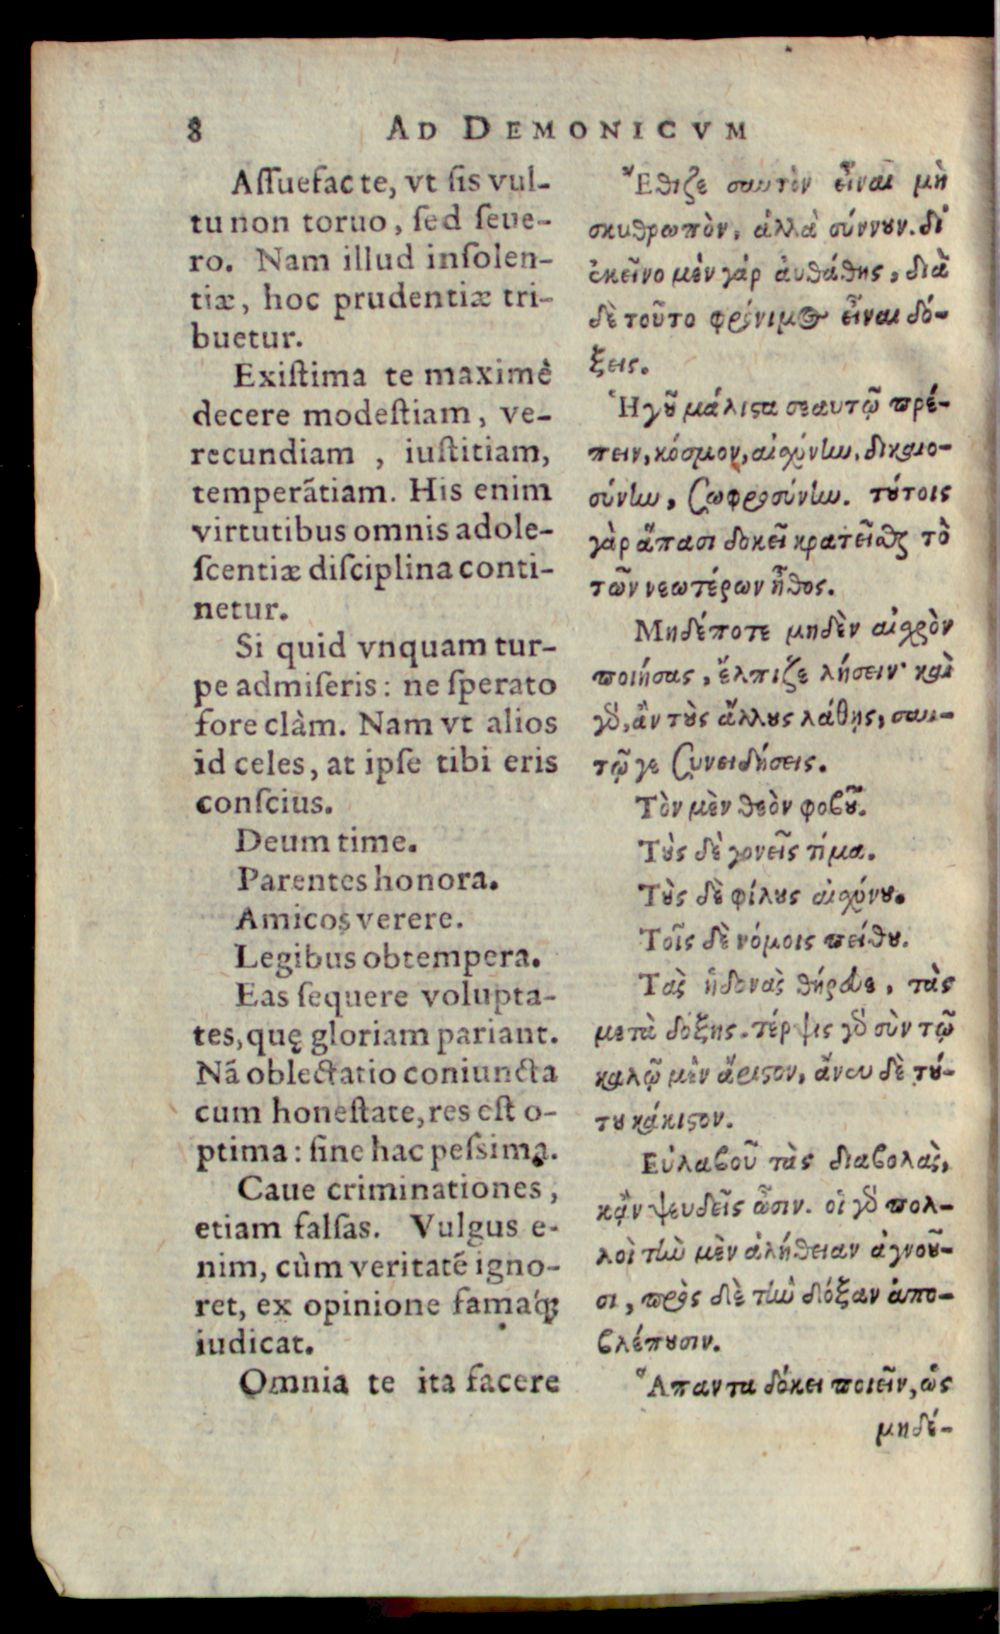 8 AD DEMONICVM
Aſſuefac te, vt ſis vul-
tu non toruo, ſed ſeue-
ro. Nam illud inſolen-
tiæ, hoc prudentiæ tri-
buetur.
Exiſtima te maximè
decere modeſtiam, ve-
recundiam , iuſtitiam,
temperãtiam. His enim
virtutibus omnis adole-
ſcentiæ diſciplina conti-
netur.
Si quid vnquam tur-
pe admiſeris: ne ſperato
fore clàm. Nam vt alios
id celes, at ipſe tibi eris
conſcius.
Deum time.
Parentes honora.
Amicos verere.
Legibus obtempera.
Eas ſequere volupta-
tes, quę gloriam pariant.
Nã oblectatio coniuncta
cum honeſtate, res eſt o-
ptima: ſine hac peſsima.
Caue criminationes,
etiam falſas. Vulgus e-
nim, cùm veritatẽ igno-
ret, ex opinione famaq́;
iudicat.
Omnia te ita facere
Ἔθιζε σαυτὸν εἶναι μὴ
σκυθρωπὸν, ἀλλὰ σύννουν. δι’
ἐκεῖνο μὲν γὰρ αὐθάδης, διὰ
δὲ τοῦτο φρόνιμος εἶναι δό-
ξεις.
Ἡγοῦ μάλιστα σεαυτῷ πρέ-
πειν, κόσμον, αἰσχύνην, δικαιο-
σύνην, σωφροσύνην. τούτοις
γὰρ ἅπασι δοκεῖ κρατεῖσθαι τὸ
τῶν νεωτέρων ἦθος.
Μηδέποτε μηδὲν αἰσχρὸν
ποιήσας, ἔλπιζε λήσειν· καὶ
γὰρ, ἂν τοὺς ἄλλους λάθῃς, σαυ-
τῷ γε συνειδήσεις.
Τὸν μὲν θεὸν φοβοῦ.
Τοὺς δὲ γονεῖς τίμα.
Τοὺς δὲ φίλους αἰσχύνου.
Τοῖς δὲ νόμοις πείθου.
Τὰς ἡδονὰς θήρευε, τὰς
μετὰ δόξης. τέρψις γὰρ σὺν τῷ
καλῷ μὲν ἄριστον, ἄνευ δὲ τού-
του κάκιστον.
Εὐλαβοῦ τὰς διαβολὰς,
κᾂν ψευδεῖς ὦσιν. οἱ γὰρ πολ-
λοὶ τὴν μὲν ἀλήθειαν ἀγνοοῦ-
σι, πρὸς δὲ τὴν δόξαν ἀπο-
βλέπουσιν.
Ἅπαντα δόκει ποιεῖν, ὡς
μηδέ-